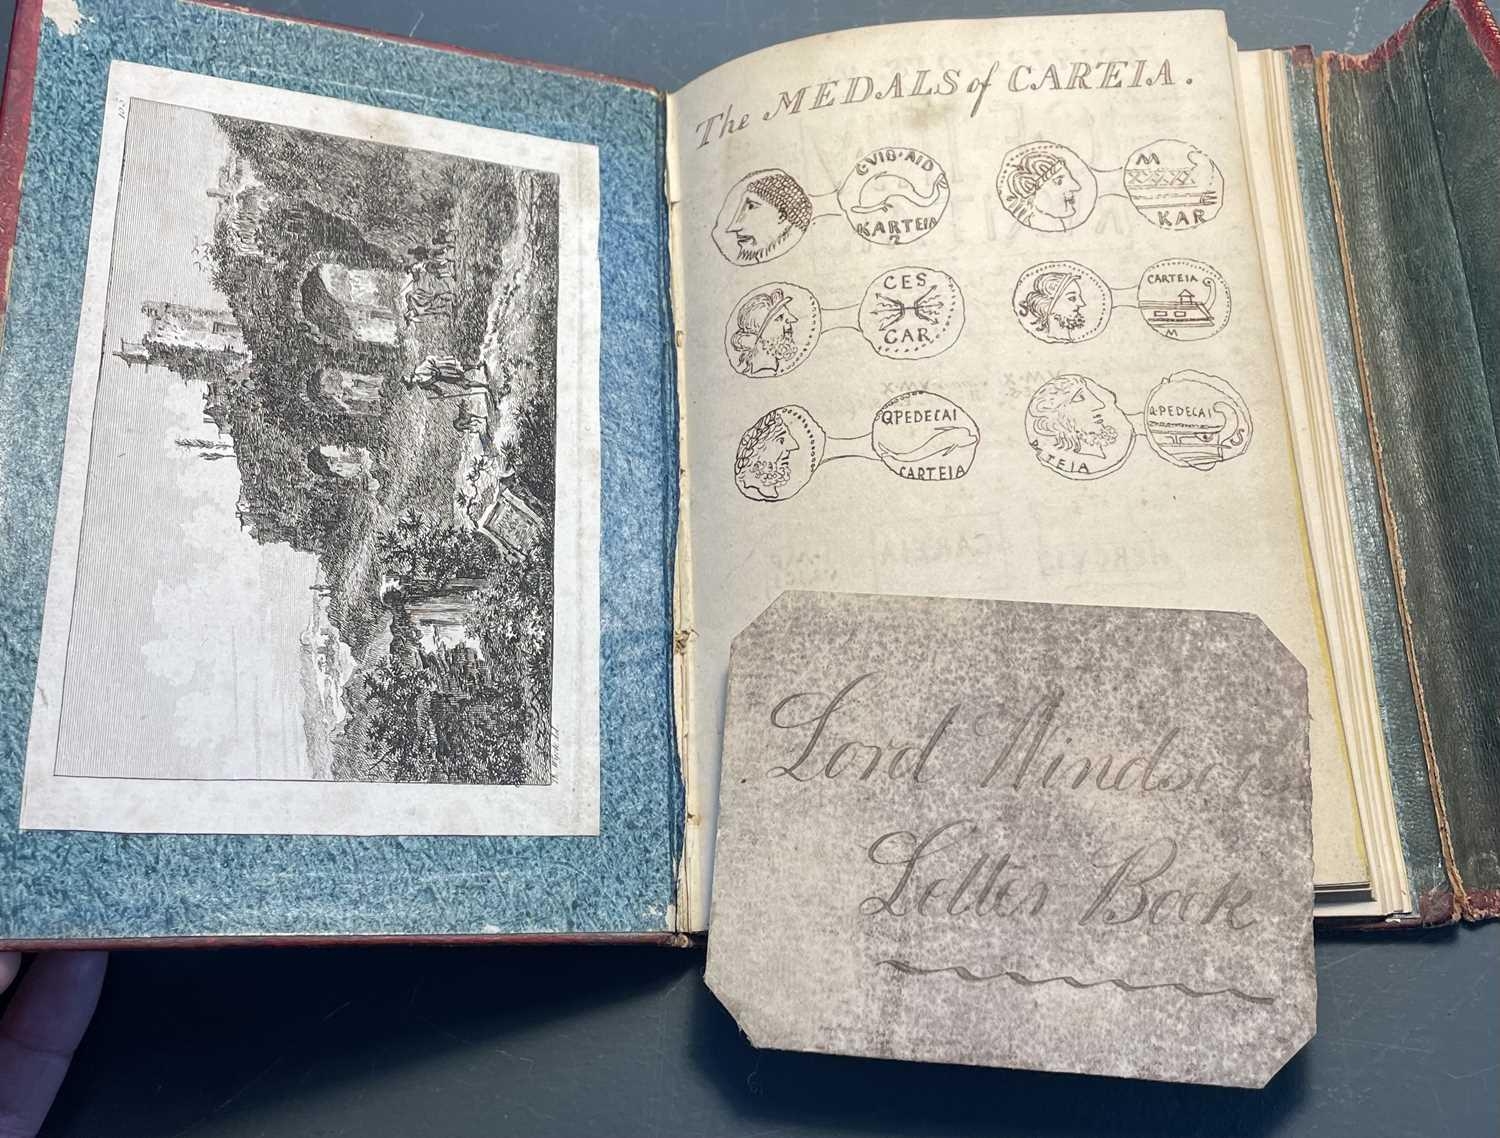 The MEDALS of CARTEIA.
C·VIB·AID
KARTEIA
M
KAR
CES
CAR
CARTEIA
M
Q PEDECAI
CARTEIA
TEIA
Q·PEDECAI
S
Lord Windsors
Letter Book